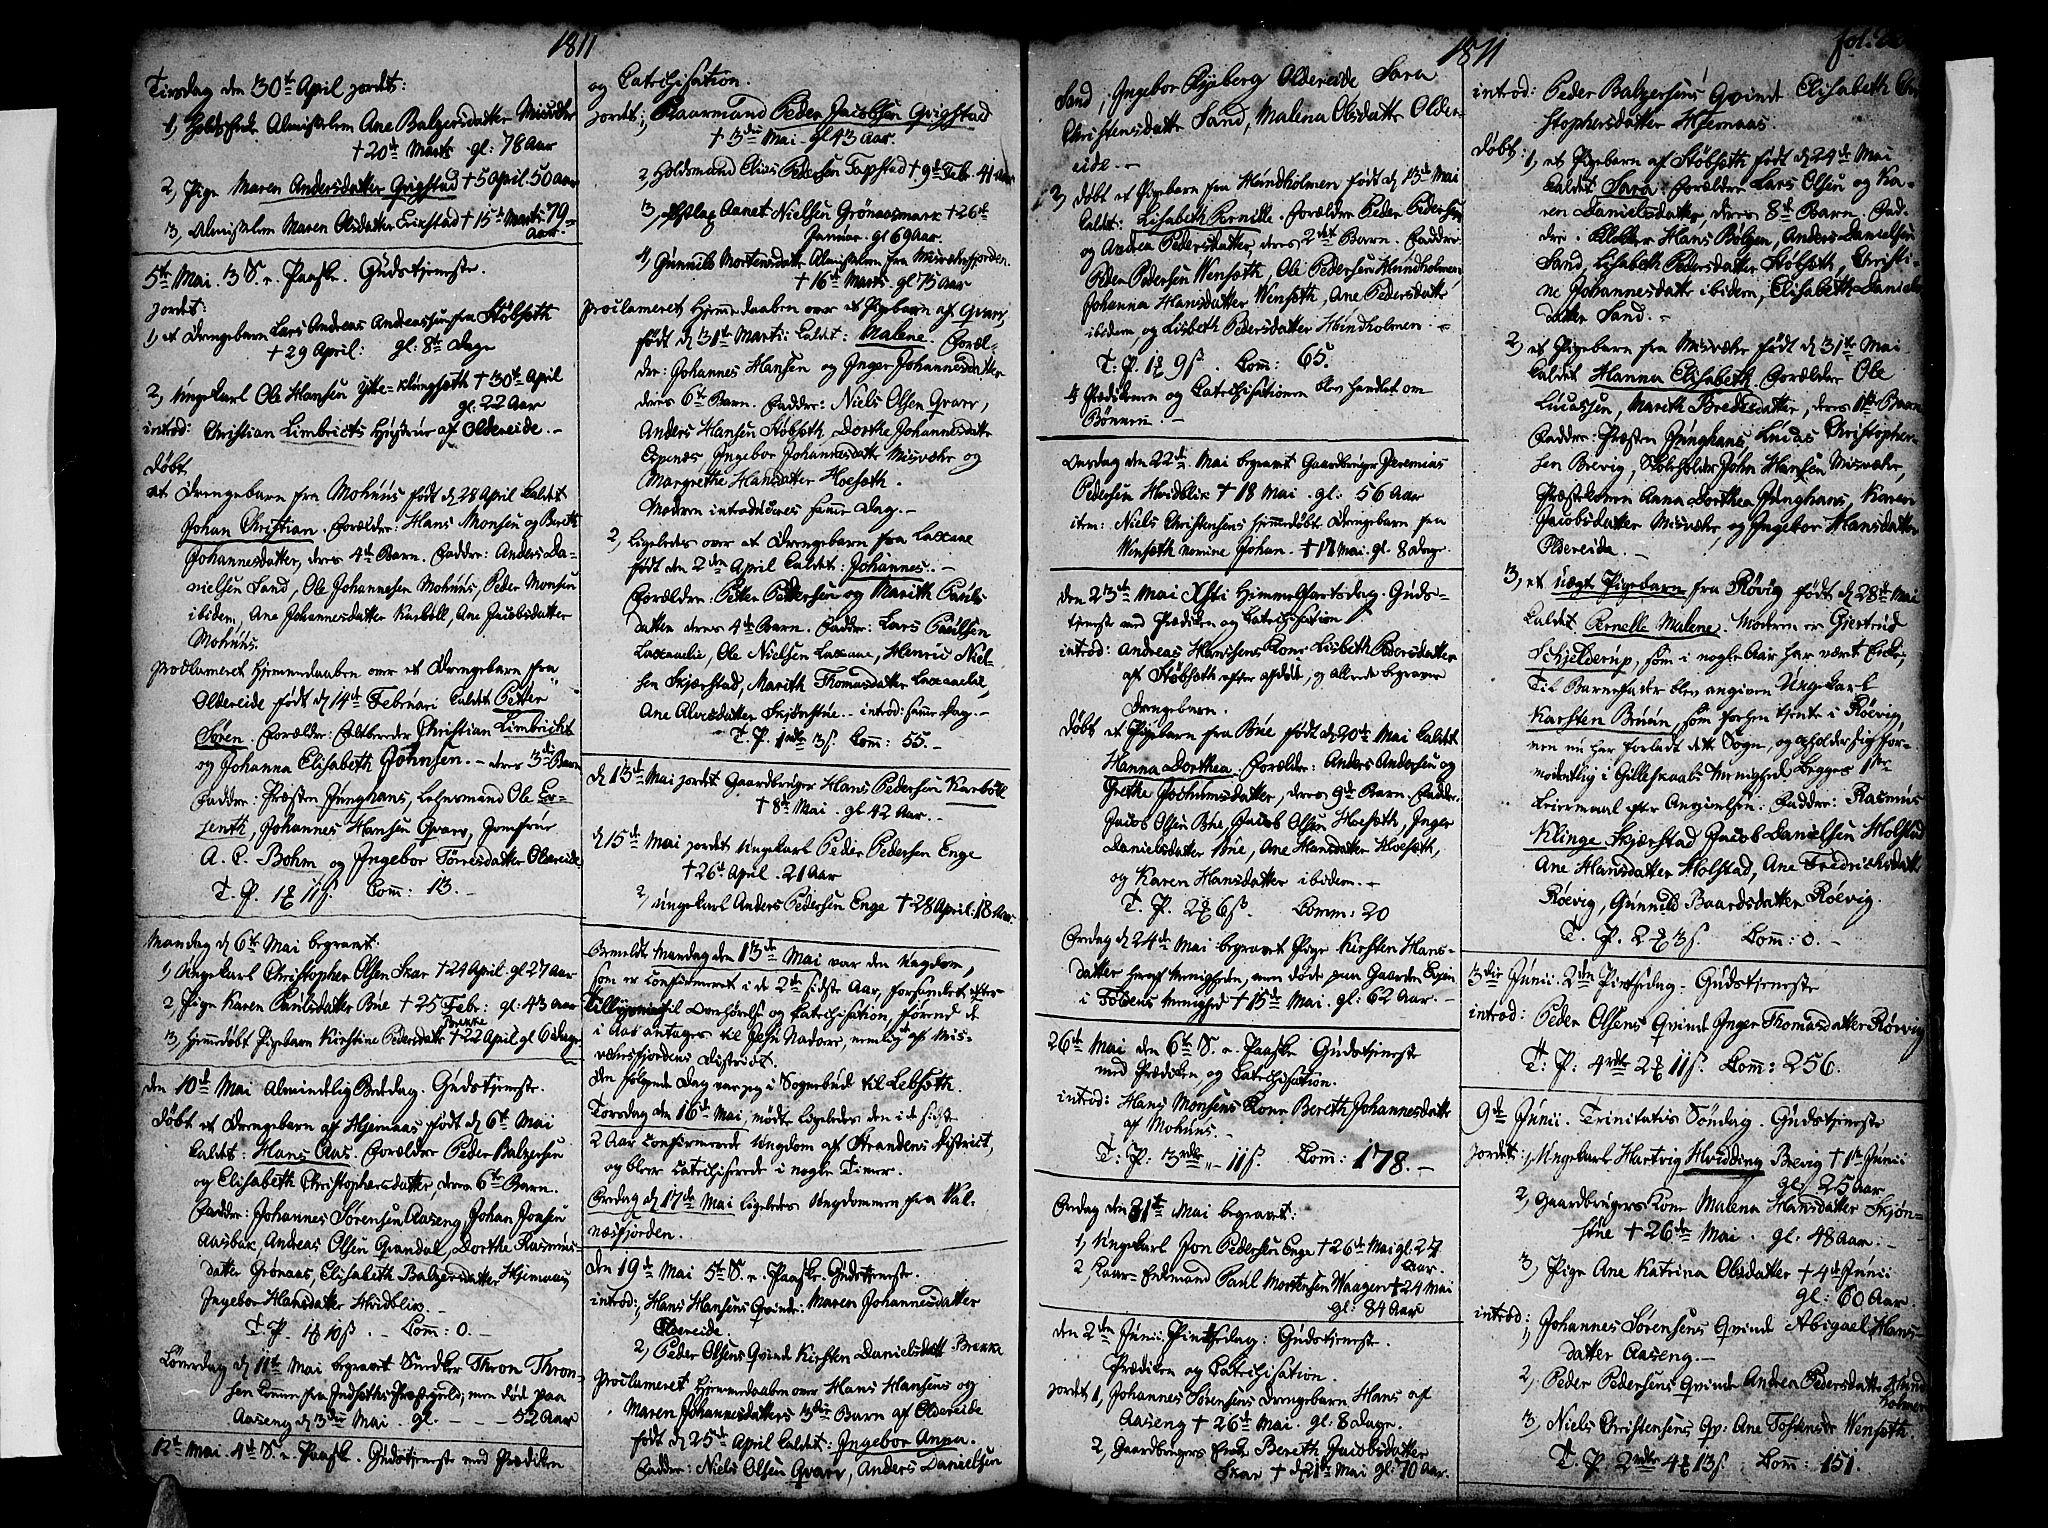 1811
Tirsdag den 30te April jordet:
1, Holdsfode Almislem Ane Balzersdatter Misvær
† 20de Marts gl: 78 Aar
2, Pige Maren Andersdatter Grigstad † 5 April. 50 Aar
3, Almislem Maren Olsdatter Erikstad † 15de Marts 79
Aar.
5te Mai. 3 S. e. Paaske. Gudstjeneste.
jordet:
1, et Drengebarn Lars Andreas Andreassen fra Støbseth
† 29 April: gl: 8te Dage
2, Ungekarl Ole Hansen Ytre-Klungseth † 30te April
gl. 22 Aar
introd: Christian Limbrichts Hustrue af Oldereide.
døbt
et Drengebarn fra Mohuus født d. 28 April kaldet
Johan Christian. Forælder: Hans Monsen og Bereth
Johannesdatter, deres 4de Barn. Fadder: Anders Da-
nielsen Sand, Ole Johannesen Mohuus, Peder Monsen
ibidem, Ane Johannesdatter Karbøll, Ane Jacobsdatter
Mohuus.
proclameret Hjemmedaaben over et Drengebarn fra
Oldereide født d. 14de Februari kaldet Petter
Søren. Forælder: Christian Limbricht
og Johanna Elisabeth Johnsen. - deres 3die Barn
Fadder: Præsten Junghans, Lehnsmand Ole
Johannes Hansen Qvarv, Jomfrue
A. C. Bohm og Ingebor Torresdatter Oldereide.
T. P. 1 11ß. Com: 13.
Mandag d. 6te Mai begravet:
1, Ungekarl Christopher Olsen Skar † 24 April gl 27 Aar
2, Pige Karen Paulsdatter Bue † 25 Febr: gl: 43 Aar
3, Hjemmedøbt Pigebarn Kirstine Pedersdatr Brekke † 22 April gl 6 Dage
den 10de Mai Almindelig Bededag. Gudstjeneste.
Døbt et Drengebarn af Hjemaas født d. 6te Mai
kaldet: Hans Aas. Forælder Peder Balzersen
og Elisabeth Christophersdatter, deres 6te Barn.
Fadder: Johannes Sørensen Aaseng Johan Jonsen
Aasbak, Andreas Olsen Qvandal, Dorthe Rasmus-
datter Grønaas, Elisabeth Balzersdatter Hjemaas,
Ingebor Hansdatter Hvidblik.
T. P. 1 10ß. - Com: 0.
Løverdag d. 11te Mai begravet Snedker Thron Thron-
sen kommen fra Indseths Præstegield, men død paa
Aaseng d. 3die Mai. gl. - - - 52 Aar
12te Mai. 4de S. e. Paaske. Gudstjeneste med Prædiken
og Catechisation.
jordet: 1, Kaarmand Peder Jacobsen Grigstad
† 3die Mai gl 43 Aar.
2, Holdsmand Elias Pedersen Tapstad † 9de Febr. 41 Aar
3, Aanet Nielsen Grønaasmark † 26de
Januar. gl 69 Aar.
4, Gunnild Mortensdatter Almislem fra Misværfjorden
† 16de Marts gl 75 Aar
proclameret Hjemmedaaben over et Pigebarn af Qvarv,
født d. 31te Marti: kaldet: Malene. Foræl-
der: Johannes Hansen og Inger Johannesdatter
deres 6te Barn. Fadder: Niels Olsen Qvarv,
Anders Hansen Støbseth Dorthe Johannesdatter
Espenæs Ingebor Johannesdatter Misvær og
Margrethe Hansdatter Hoeseth.
Moderen introduceres samme Dag.
2, Ligeledes over et Drengebarn fra Laxaae
født den 2den April kaldet: Johannes.
Forælder: Peter Pettersen og Marith Pauls-
datter deres 4de Barn. Fadder: Lars Paulsen
Laxaaelie, Ole Nielsen Laxaae, Henric Niel-
sen Skjærstad, Marith Thomasdatter Laxaaelie,
Ane Alvesdatter Skjønstue. - introd: samme Dag.
T. P. 1rdr 3ß. Com: 55.
d. 13de Mai jordet Gaardbruger Hans Pedersen Karbøll
† 8de Mai. gl. 42 Aar.
d. 15de Mai jordet Ungekarl Peder Pedersen Enge
† 26de April. 21 Aar
2, Ungekarl Anders Pedersen Enge † 28 April. 18 Aar.
Bemeldte Mandag den 13de Mai var den Ungdom,
som er confirmeret i de 2de sidste Aar, forsamlet efter
Tillysning til Overhørelse og Catechisation, førend de
i Aar antages til Jesu Nadvere, nemlig af Mis-
værfjordens District.
Den følgende Dag var jeg i Sognebud til Lebseth.
Torsdag den 16de Mai, mødte ligeledes den i de sidste
2 Aar confirmerede Ungdom af Strandens District,
og blev catechiserede i nogle Timer.
Fredag d. 17de Mai ligeledes Ungdommen fra Val-
næsfjorden.
den 19de Mai 5te S. e. Paaske. Gudstjeneste.
introd: 1, Hans Hansens Qvinde: Maren Johannesdatter
Oldereide.
2, Peder Olsens Qvinde Kirsten Danielsdatt Brekke
Proclameret Hjemmedaaben over Hans Hansens og
Maren Johannesdatters 3die Barn af Oldereide
født d. 25de April kaldet: Ingebor Anna.
Fadder: Niels Olsen Qvarv, Anders Danielsen
1811
fol.
Sand, Ingebor Rysberg Oldereide Sara
Christensdatter Sand, Malena Olsdatter Older-
eide.
3, døbt et Pigebarn fra Hundholmen født d. 13de Mai
kaldet: Lisabeth Pernille. Forælder Peder Pedersen
og Andrea Pedersdatter deres 2det Barn. Fadder:
Peder Pedersen Wenseth, Ole Pedersen Hundholmen,
Johanna Hansdatter Wenseth, Ane Pedersdatter
ibidem, og Lisbeth Pedersdatter Hundholmen.
T. P. 1 9ß. Com: 65.
I Prædikenen og Catechisationen blev handlet om
Bønnen.
Onsdag den 22de Mai begravet Gaardbruger Jeremias
Pedersen Hvidblik † 18 Mai. gl: 56 Aar
item: Niels Christensens hjemmedøbt Drengebarn fra
Wenseth nomine Johan. † 17 Mai. gl. 8 Dage.
den 23de Mai Xsti Himmelfartsdag. Guds-
tjeneste med Prædiken og Catechisation
introd: Andreas Hansens Kone Lisbeth Pedersdatter
af Støbseth efter afdøde, og allerede begravne
Drengebarn.
Døbt et Pigebarn fra Bue født d. 20de Mai kaldet
Hanna Dorthea. Forælder: Anders Andersen og
Grethe Jochumsdatter, deres 9de Barn. Fadder.
Jacob Olsen Bue, Jacob Olsen Hoeseth, Inger
Danielsdatter Bue, Ane Hansdatter Hoeseth,
og Karen Hansdatter ibidem.
T. P. 2 6ß. Comm: 20
Fredag d. 24de Mai begravet Pige Kirsten Hans-
datter her af Menigheden, men døde paa Gaarden
i Foldens Menighed † 15de Mai. gl: 62 Aar.
26de Mai den 6te S. e. Paaske Gudstjeneste
med Prædiken, og Catechisation.
introd: Hans Monsens Kone Bereth Johannesdatter
af Mohuus.
T. P: 3rdr - 11ß. Com: 178.
Fredag den 31te Mai begravet:
1, Ungekarl Jon Pedersen Enge † 26de Mai gl. 27
Aar.
2, Kaar-Enkemand Paul Mortensen Waagen † 24 Mai
gl: 84 Aar
den 2den Junii Pintsedag: Gudstjeneste.
Prædiken og Catechisation.
jordet 1, Johannes Sørensens Drengebarn Hans af
Aaseng † 26de Mai. gl: 8 Dage.
2, Gaardbrugers Enke Bereth Jacobsdatter
Skar † d. 21de Mai gl: 70 Aar.
1811
introd: Peder Balzersens Qvinde Elisabeth Chri-
stophersdatter Hjemaas.
Døbt: 1, et Pigebarn af Støbseth født d. 24de Mai
kaldet Sara: Forælder Lars Olsen og Ka-
ren Danielsdatter, deres 8de Barn. Fad-
der. Klokker Hans Bølgen, Anders Danielsen
Sand, Lisabeth Pedersdatter Støbseth, Christi-
ne Johannesdatter ibidem, Elisabeth Daniels-
datter Sand.
2, et Pigebarn fra Misvær født d. 31te Mai
kaldet Hanna Elisabeth. Forælder Ole
Lucassen, Marith Bredesdatter, deres 1ste Barn
Fadder: Præsten Junghans, Lucas Christopher-
sen Brevig, Skoleholder John Hansen Misvær,
Præstekonen Anna Dorthea Junghans, Karen
Jacobsdatter Misvær, og Ingebor Hansdatter
Oldereide.
3, et uægt Pigebarn fra Røvig født d. 28de Mai
kaldet Pernelle Malene. Moderen er Giertrud
Schjelderup, som i nogle Aar har været Enke,
Til Barnefader blev angiven Ungekarl
Karsten Bruun, som forhen tjente i Røevig,
men nu har forladt dette Sogn, og opholder sig for-
modentlig i Gilleskaals Menighed. Begges 1ste
Leiermaal efter Angivelsen. Fadder: Rasmus
Klinge Skjærstad Jacob Danielsen Holstad
Ane Hansdatter Holstad, Ane Fredrichsdatter
Røevig, Gunnild Baardsdatter Røevig.
T. P. 2 3ß. Com: 0.
3die Junii. 2den Pintsedag. Gudstjeneste
introd: Peder Olsens Qvinde Inger Thomasdatter Røevig
T. P. 4rdr 2 11ß. Com: 256.
9de Junii. Trinitatis Søndag. Gudstjeneste
jordet: 1, Ungekarl Hartvig Hvidding Brevig † 1ste Junii
gl: 25 Aar
2, Gaardbrugers Kone Malena Hansdatter Skjøn-
stue † 26de Mai. gl: 48 Aar.
3, Pige Ane Katrina Olsdatter † 4de Junii
gl: 60 Aar.
introd:
1, Johannes Sørensens Qvinde Abigael Hans-
datter Aaseng.
2, Peder Pedersens Qvinde Andrea Pedersdatter Hund-
holmen
3, Niels Christensens Qv: Ane Wenseth.
T. P. 2rdr 4 13ß. Com: 151.